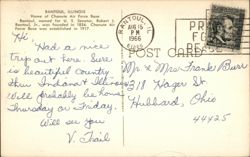 RANTOUL, ILLINOIS
Home of Chanute Air Force Base
Rantoul, named for U. S. Senator, Robert
Jr., was founded in 1856. Chanute Air
Force Base was established in 1917.
RANTOUL, IL
AUG 15
PM
1966
PRAY
FOR
POST CARD
Hi,
Had a nice
trip out here. Sure
is beautiful country
thru Indiana & Illinois
Will probably be home
Thursday or Friday.
Will see you
V. Trail
Mr & Mrs Frank Burr
318 Hager St.
Hubbard, Ohio
44425